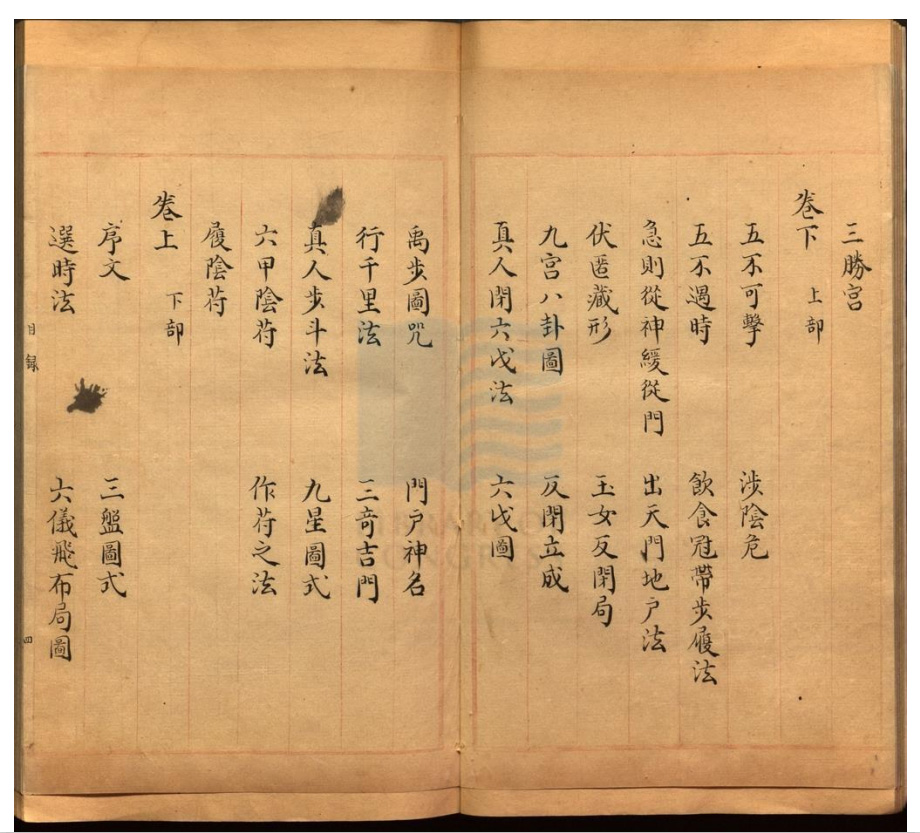 三勝宮
卷下 上部
五不可擊 涉陰危
五不遇時 飲食冠帶步履法
急則從神緩從門 出天門地户法
伏匿藏形 玉女反閉局
九宮八卦圖 反閉立成
真人閉六戊法 六戊圖
禹步圖咒 門户神名
行千里法 三奇吉門
真人步斗法 九星圖式
六甲陰符 作符之法
履陰符
卷上 下部
序文 三盤圖式
選時法 六儀飛布局圖
目録 四